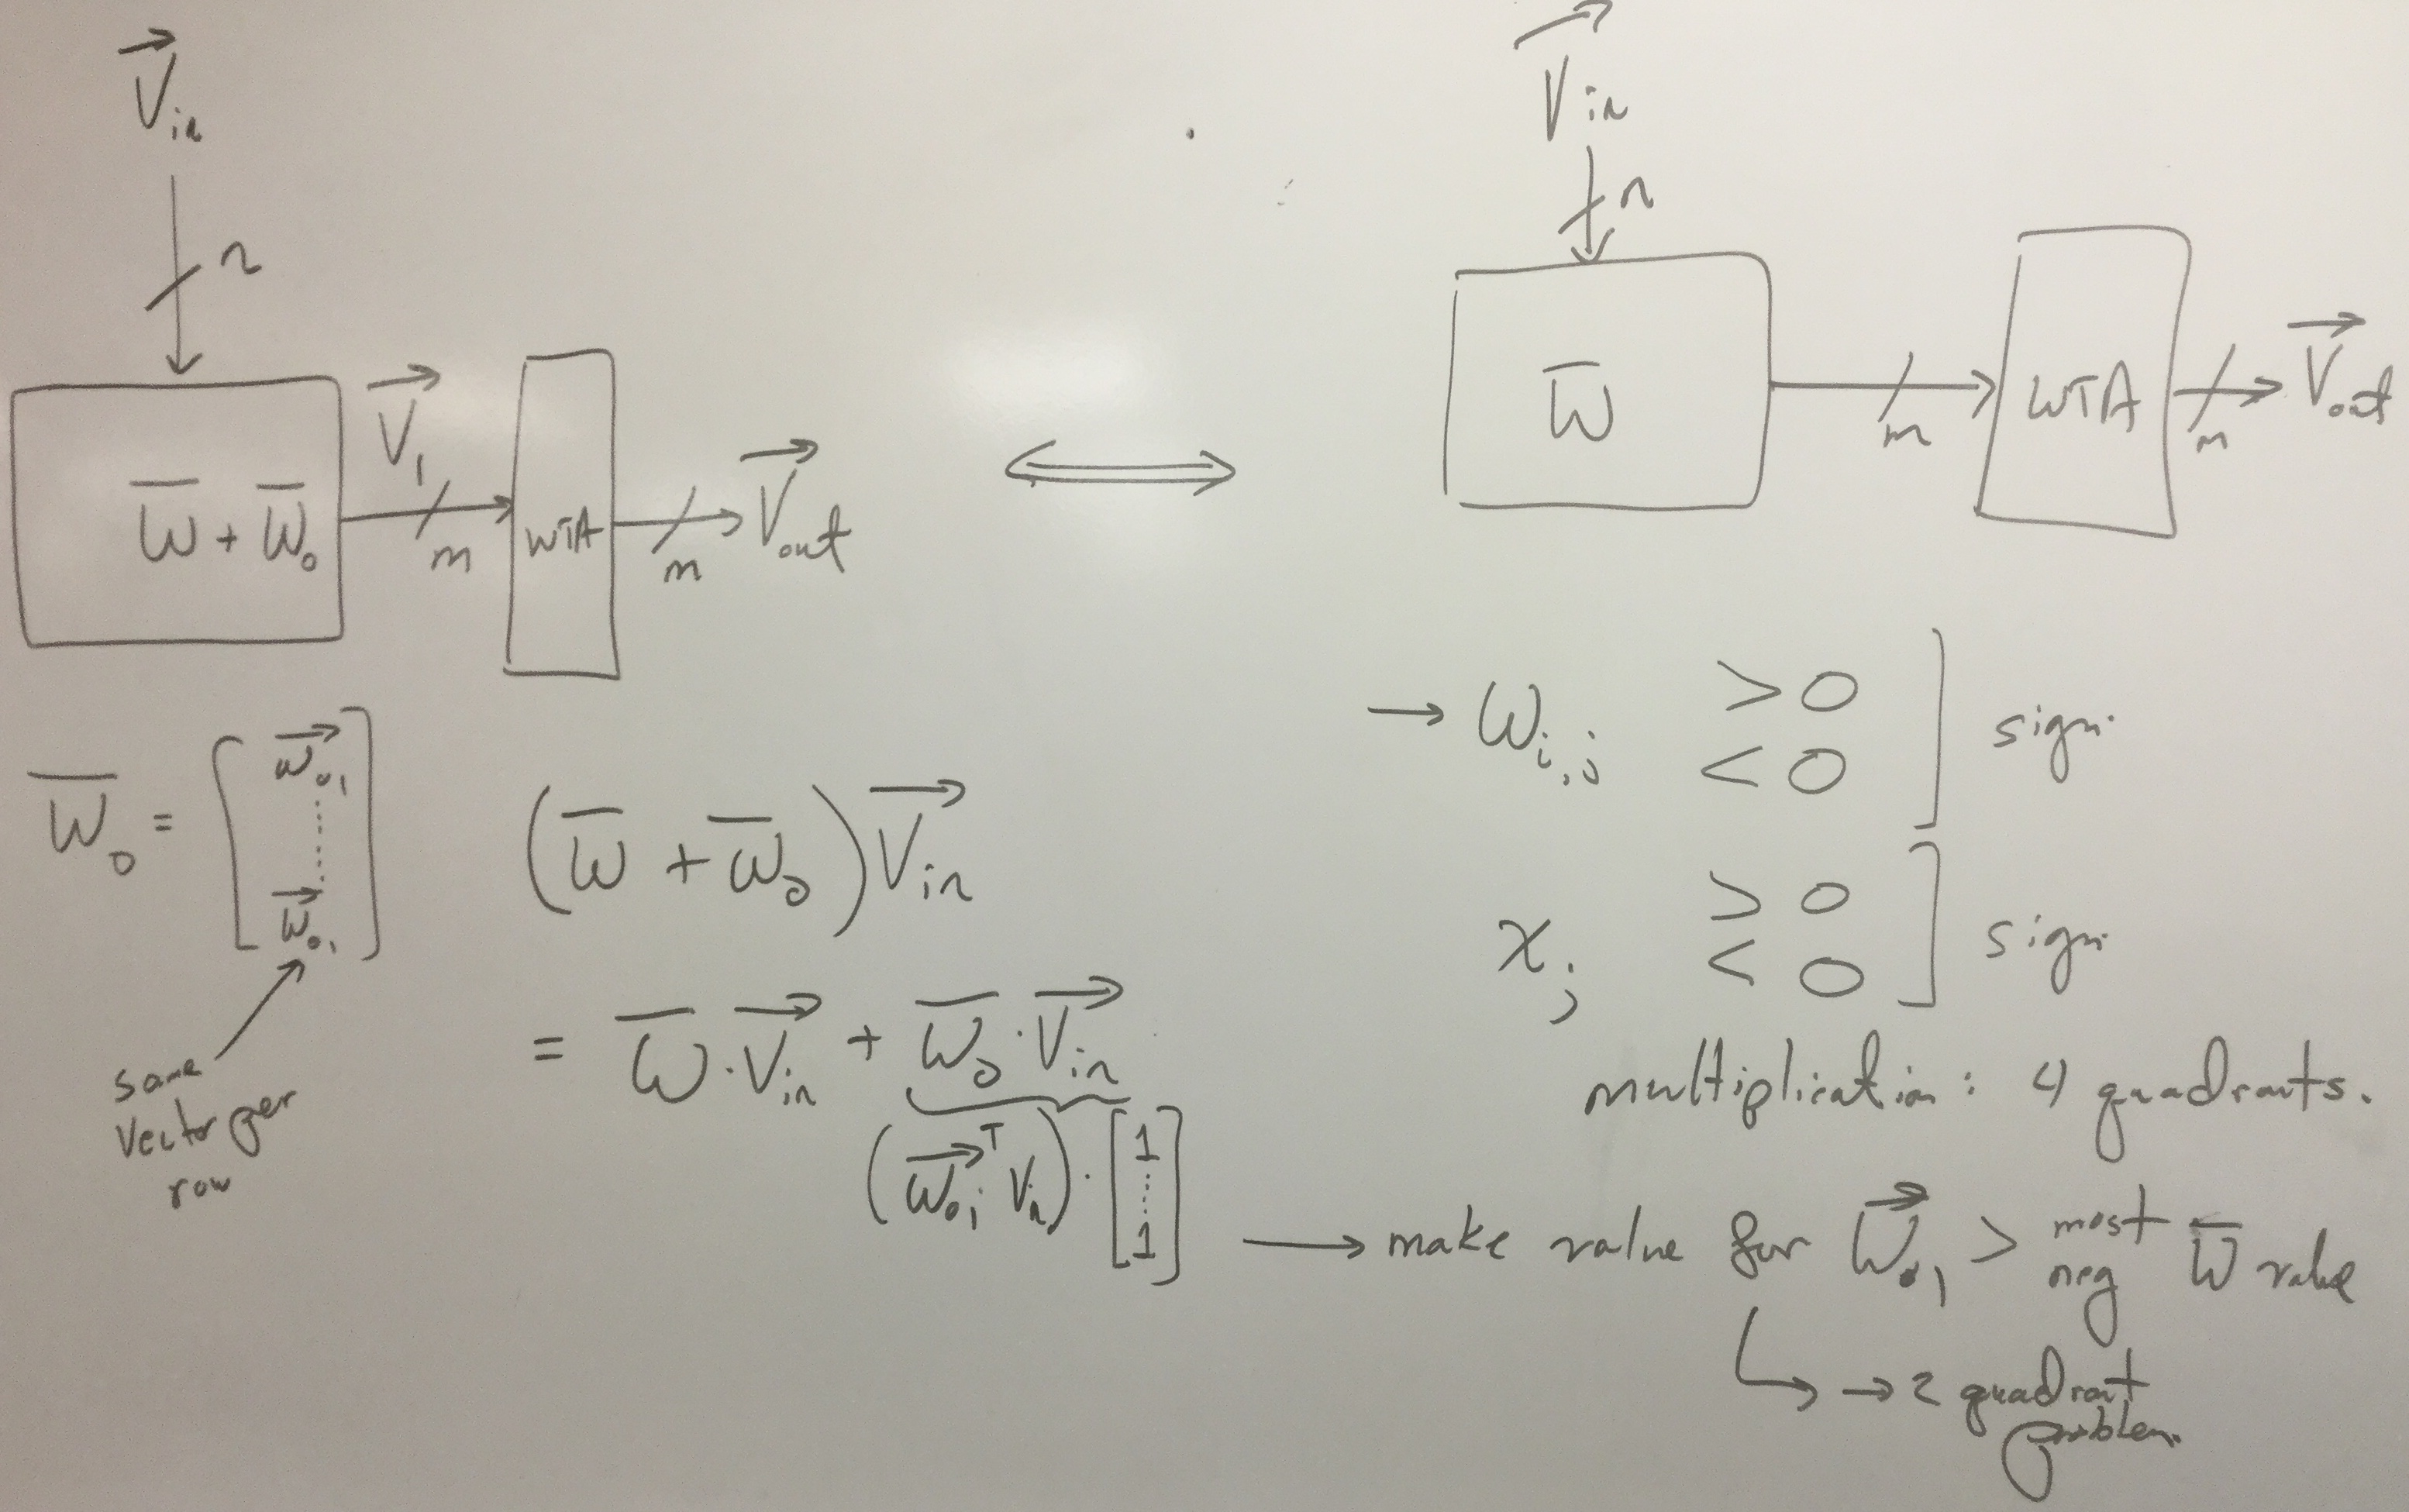 V⃗in
n
W̅ + W̅₀
V⃗₁
m
WTA
m
V⃗out
⟺
V⃗in
n
W̅
m
WTA
m
V⃗out
W̅₀ = [ w⃗₀₁ ⋮ w⃗₀₁ ]
same
vector per
row
(W̅ + W̅₀) V⃗in
= W̅ · V⃗in + W̅₀ · V⃗in
(w⃗₀₁ᵀ Vin) · [ 1 ⋮ 1 ]
→ Wi,j > 0
< 0 ] sign
xj > 0
< 0 ] sign
multiplication: 4 quadrants.
→ make value for W⃗₀₁ > most neg W̅ value
→ → 2 quadrant
problem.